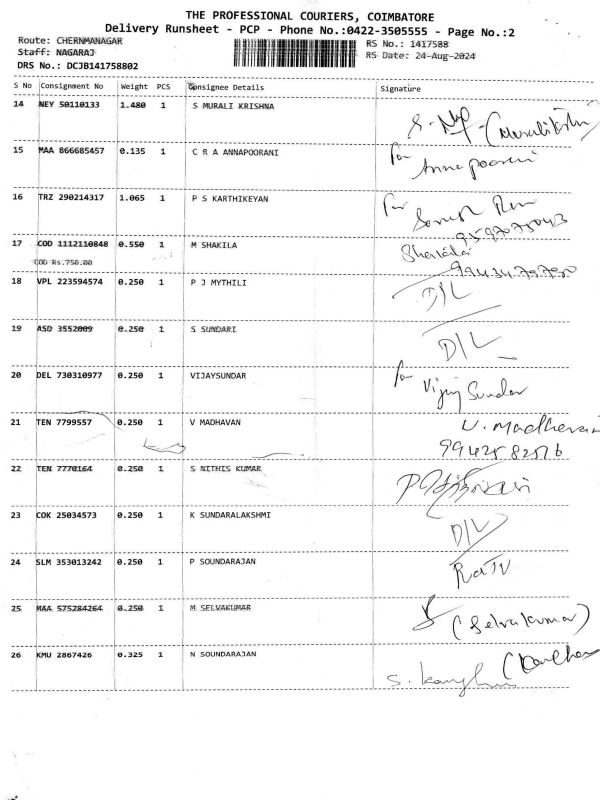 THE PROFESSIONAL COURIERS, COIMBATORE
Delivery Runsheet - PCP - Phone No.:0422-3505555 - Page No.:2
Route: CHERNMANAGAR
RS No.: 1417588
Staff: NAGARAJ
RS Date: 24-Aug-2024
DRS No.: DCJB141758802
S No Consignment No Weight PCS Consignee Details Signature
14 NEY 50110133 1.480 1 S MURALI KRISHNA
15 MAA 866685457 0.135 1 C R A ANNAPOORANI for Annapoorani
16 TRZ 290214317 1.065 1 P S KARTHIKEYAN for
17 COD 1112110848 0.550 1 M SHAKILA Shakila
COD Rs.750.00
18 VPL 223594574 0.250 1 P J MYTHILI D/L
19 ASD 3552009 0.250 1 S SUNDARI D/L
20 DEL 730310977 0.250 1 VIJAYSUNDAR for Vijay Sundar
21 TEN 7799557 0.250 1 V MADHAVAN V. Madhavan
9942582516
22 TEN 7770164 0.250 1 S NITHIS KUMAR
23 COK 25034573 0.250 1 K SUNDARALAKSHMI D/L
24 SLM 353013242 0.250 1 P SOUNDARAJAN
25 MAA 575284264 0.250 1 M SELVAKUMAR (Selvakumar)
26 KMU 2867426 0.325 1 N SOUNDARAJAN